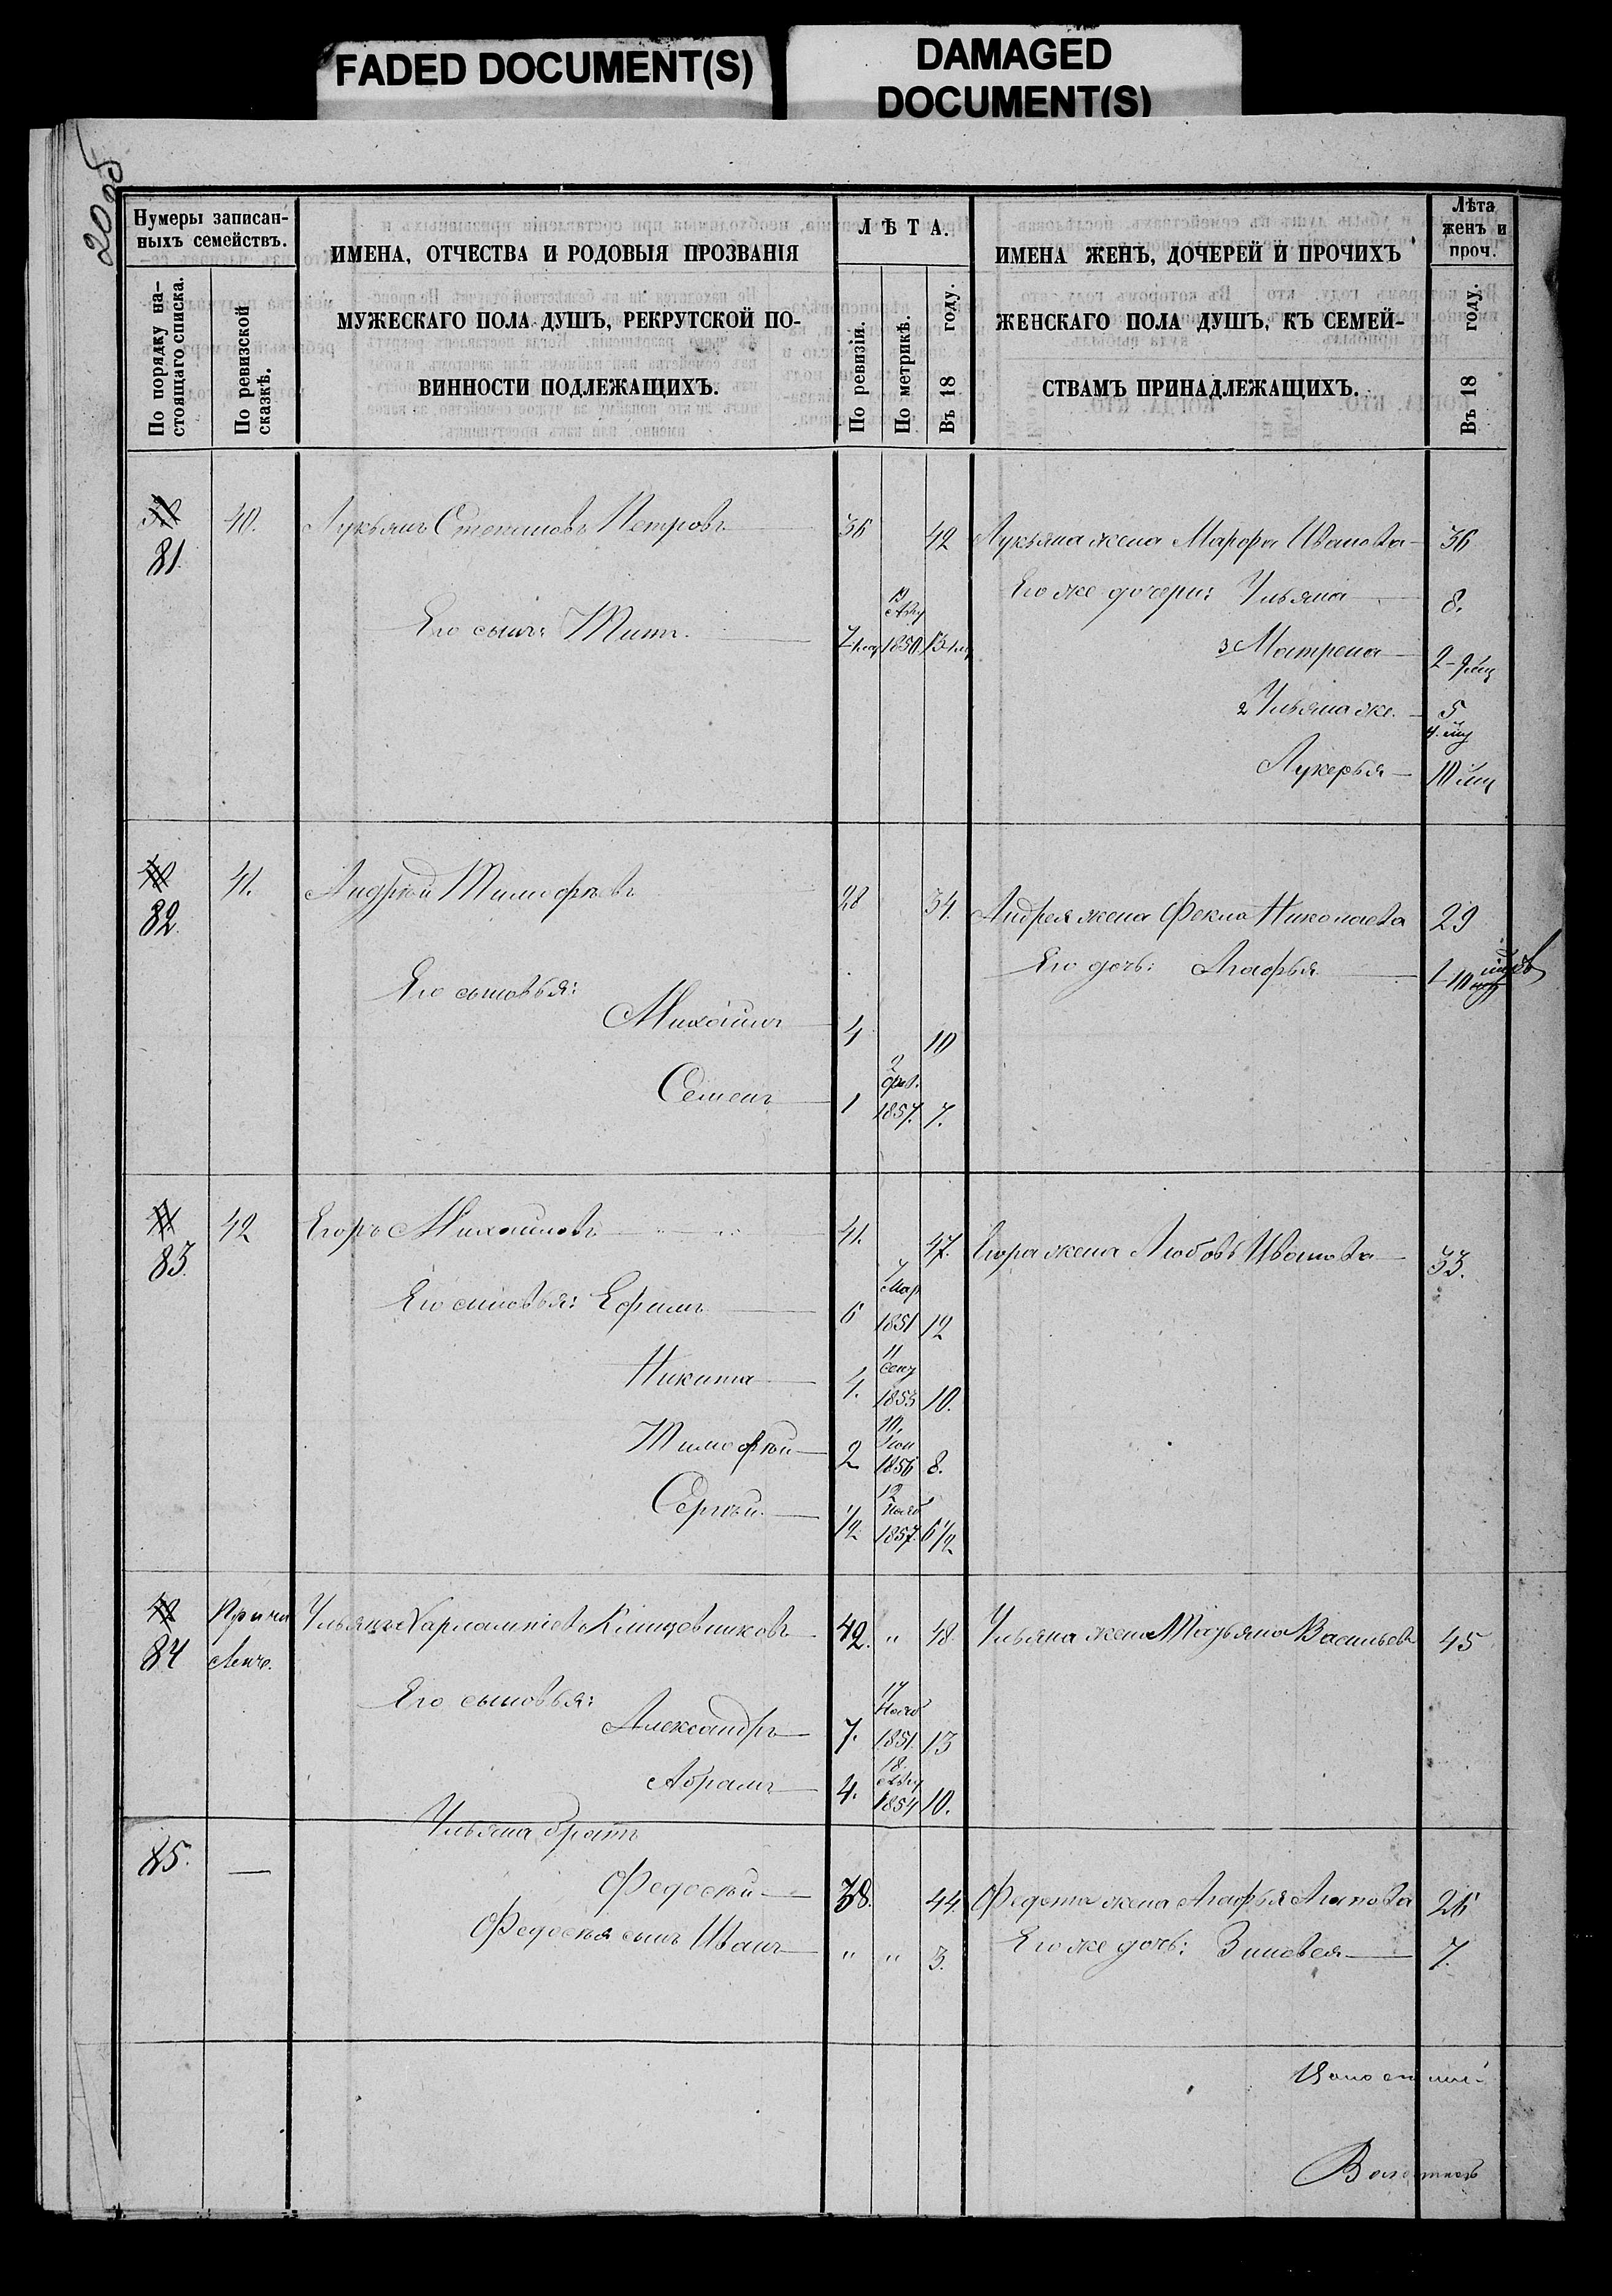 FADED DOCUMENT(S)
DAMAGED
DOCUMENT(S)
20 об
Нумеры записан-
ныхъ семействъ.
По порядку на-
стоящаго списка.
По ревизской
сказкѣ.
ИМЕНА, ОТЧЕСТВА И РОДОВЫЯ ПРОЗВАНІЯ
МУЖЕСКАГО ПОЛА ДУШЪ, РЕКРУТСКОЙ ПО-
ВИННОСТИ ПОДЛЕЖАЩИХЪ.
ЛѢТА.
По ревизіи.
По метрикѣ.
Въ 18 году.
ИМЕНА ЖЕНЪ, ДОЧЕРЕЙ И ПРОЧИХЪ
ЖЕНСКАГО ПОЛА ДУШЪ, КЪ СЕМЕЙ-
СТВАМЪ ПРИНАДЛЕЖАЩИХЪ.
Лѣта
женъ и
проч.
Въ 18 году.
81 40. Лукьянъ Степановъ Петровъ 36 42 Лукьяна жена Марфа Иванова 36
Его же дочери: Ульяна 8.
Его сынъ: Титъ. 1850
3 Матрена 2
2 Ульяна же. 5
Лукерья 10
82 41. Андрей Тимофѣевъ 28 34. Андрея жена Фекла Николаева 29
Его дочь: Агафья 1
Его сыновья:
Михаилъ 4 10
Семенъ 1 2 фев. 1857. 7.
83. 42 Егоръ Михаиловъ 41. 47. Егора жена Любовь Иванова 33.
Его сыновья: Ефимъ 6 7 Мар 1851 12
Никита 4. 11 Сен 1853 10.
Тимофѣй 2 10. 1856 8.
Сергѣй. 1/2 12 Нояб 1857. 6 1/2
84 Ульянъ Харлампіевъ 42. „ 48. Ульяна жена Татьяна Васильев 45
Его сыновья:
Александръ 7. 17 Нояб 1851. 13
Абрамъ 4. 18. 1854 10.
Ульяна братъ
85. —
Федосѣй 38. 44 Федота жена Агафья 26
Федосѣя сынъ Иванъ „ „ 3. Его же дочь: Зиновея 7.